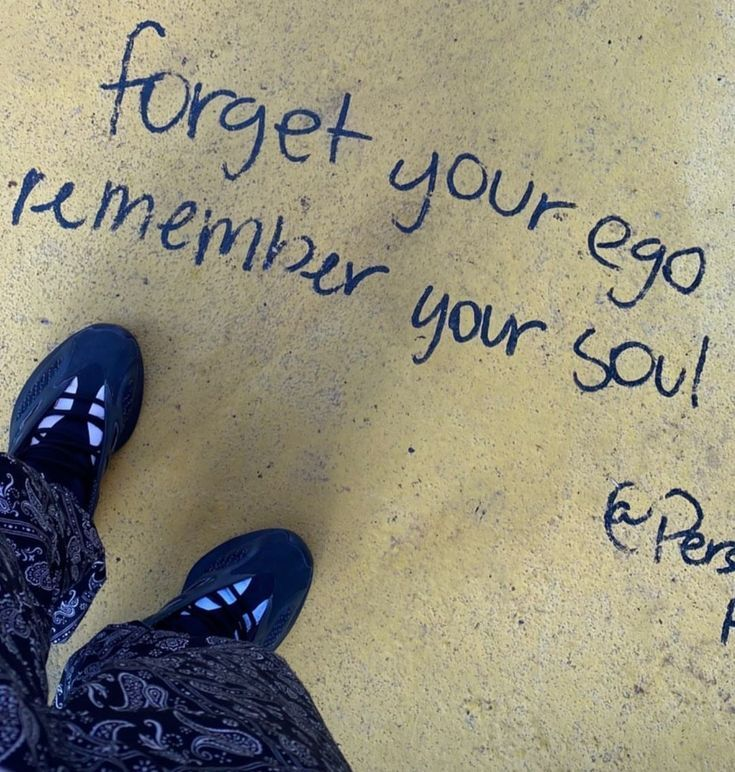 forget your ego
remember your soul
@Pers